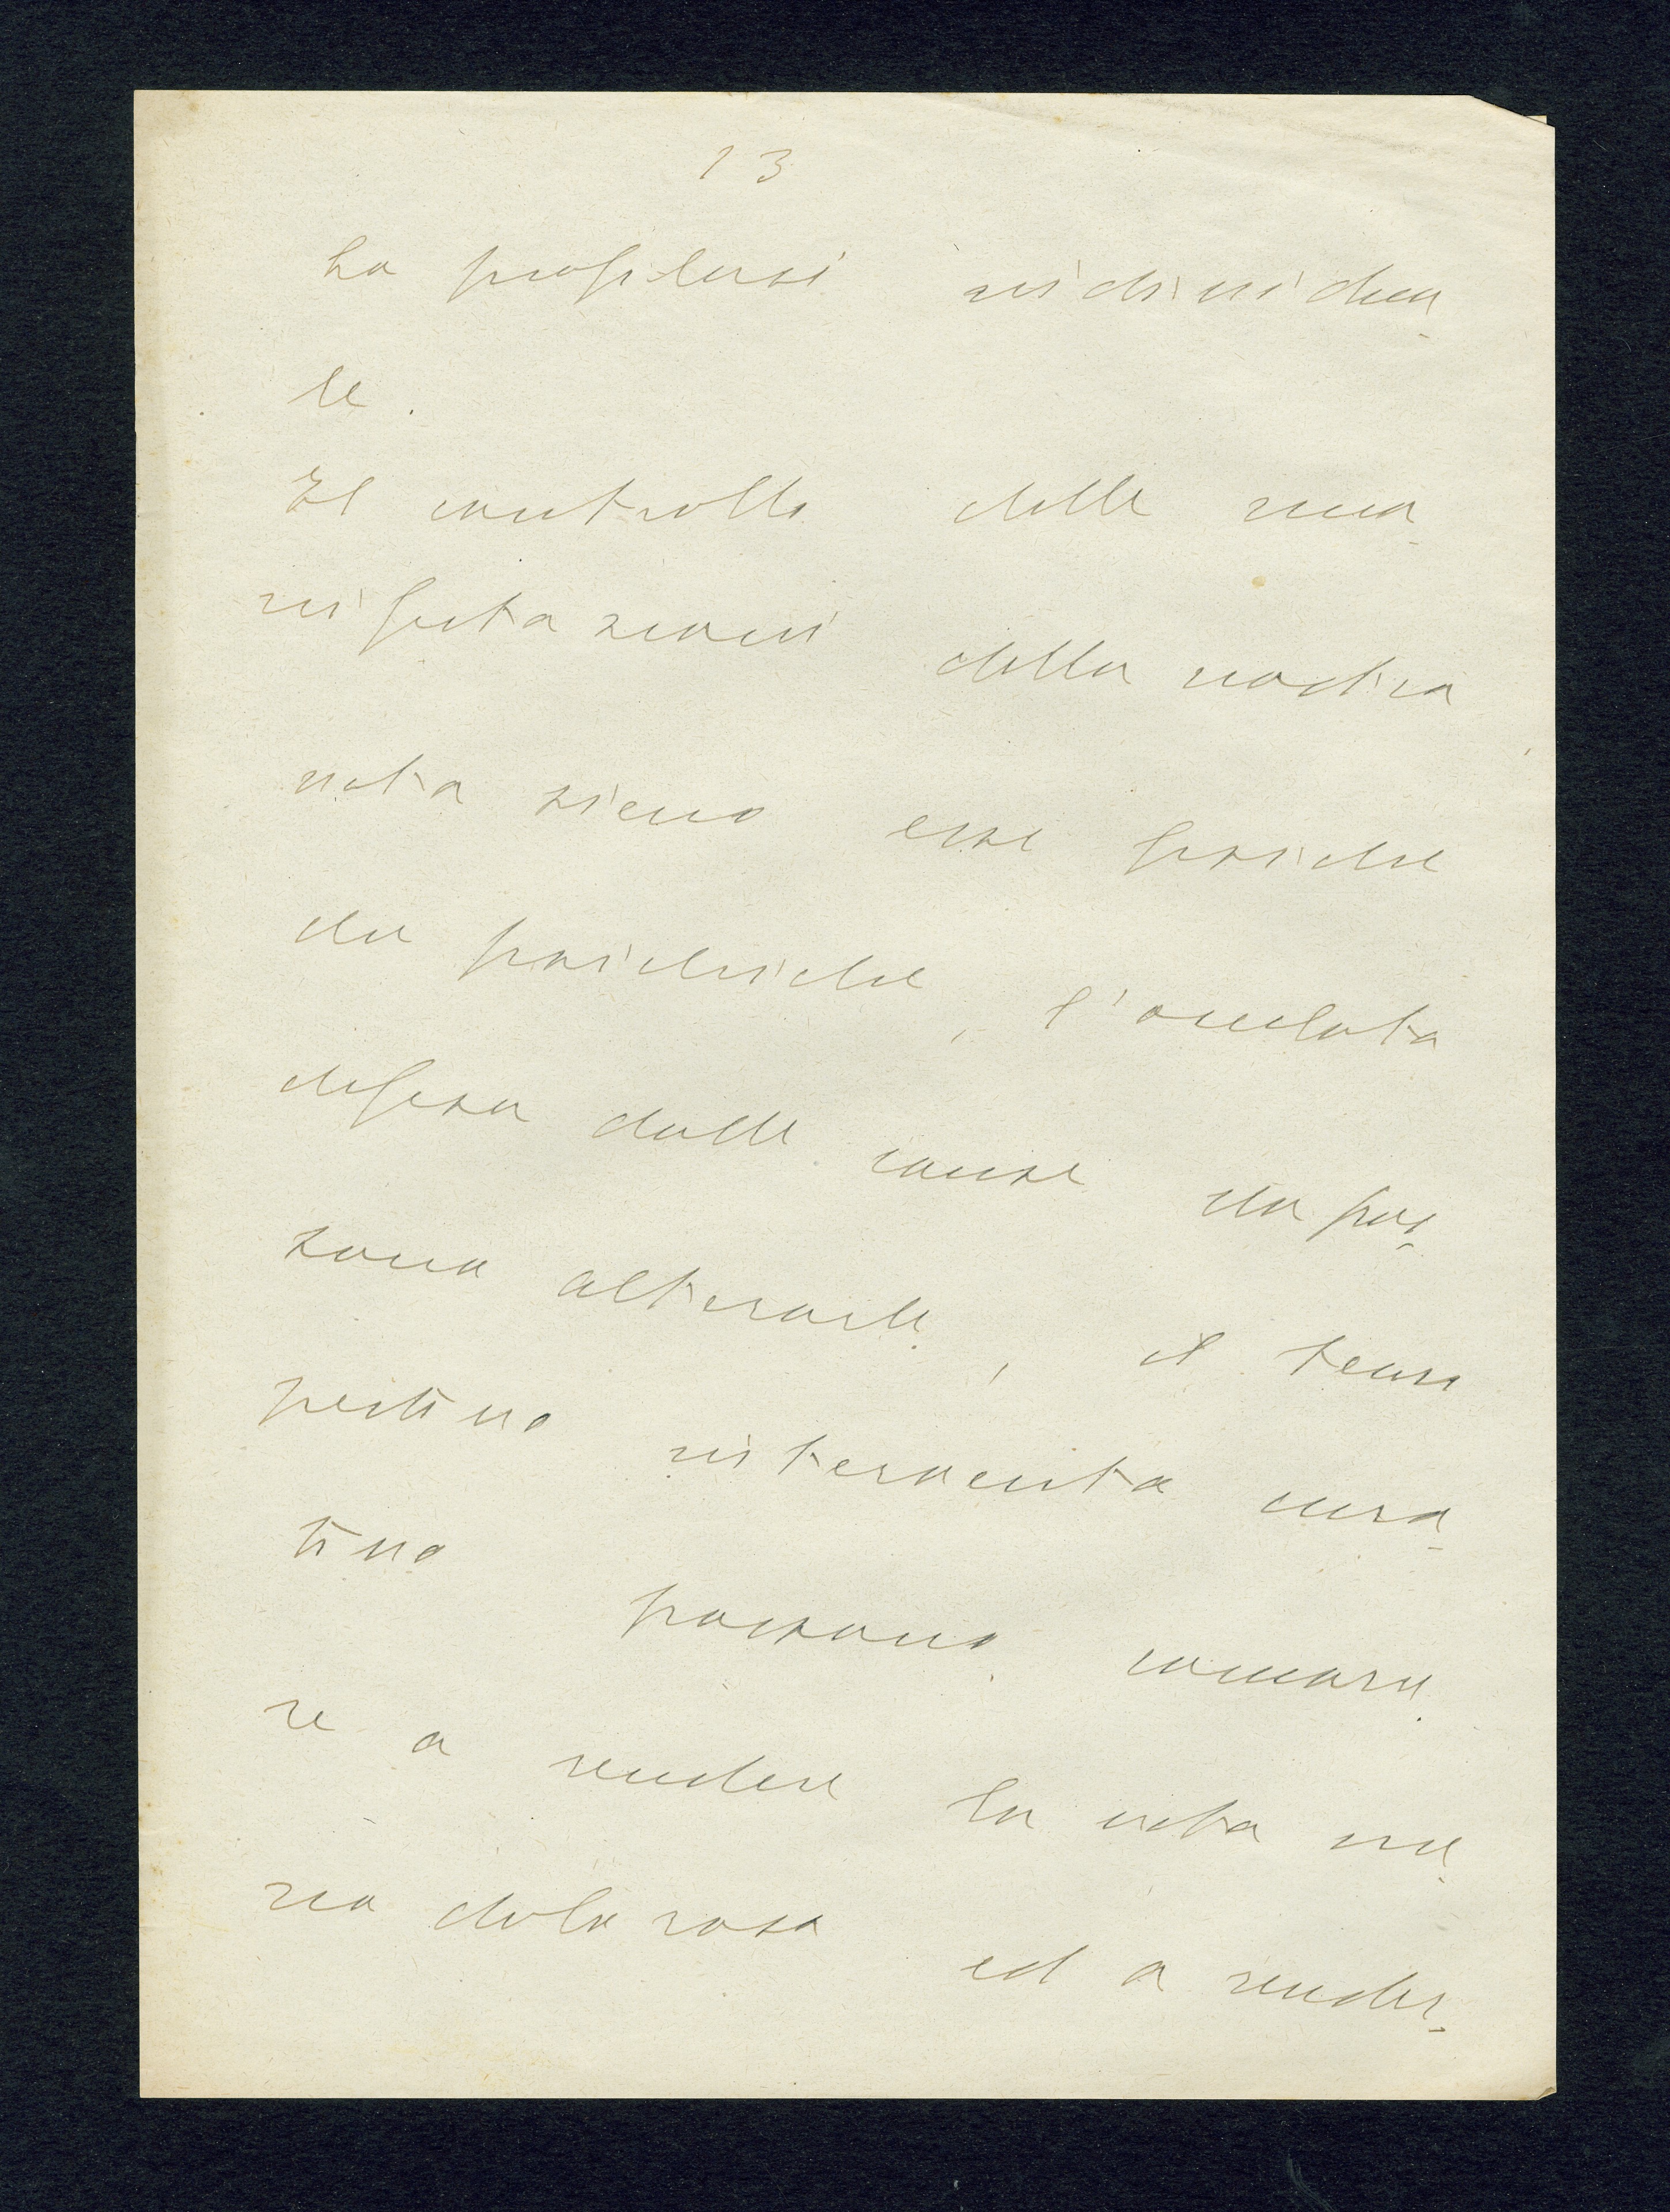 13
la profilassi individua-
le.
Il controllo delle ma-
nifestazioni della nostra
vita sieno esse fisiche
che psichiche, l'oculata
difesa dalle cause che pos-
sono alterarle, il tem-
pestivo intervento cura-
tivo possono concorre-
re a rendere la vita me-
no dolorosa ed a render-